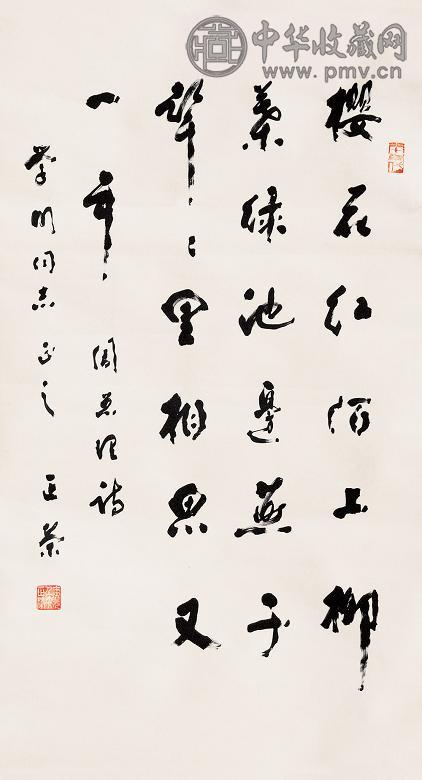 中华收藏网
www.pmv.cn
櫻花红陌上柳
葉绿池邊燕子
聲〻里相思又
一年 周总理诗
学明同志正之